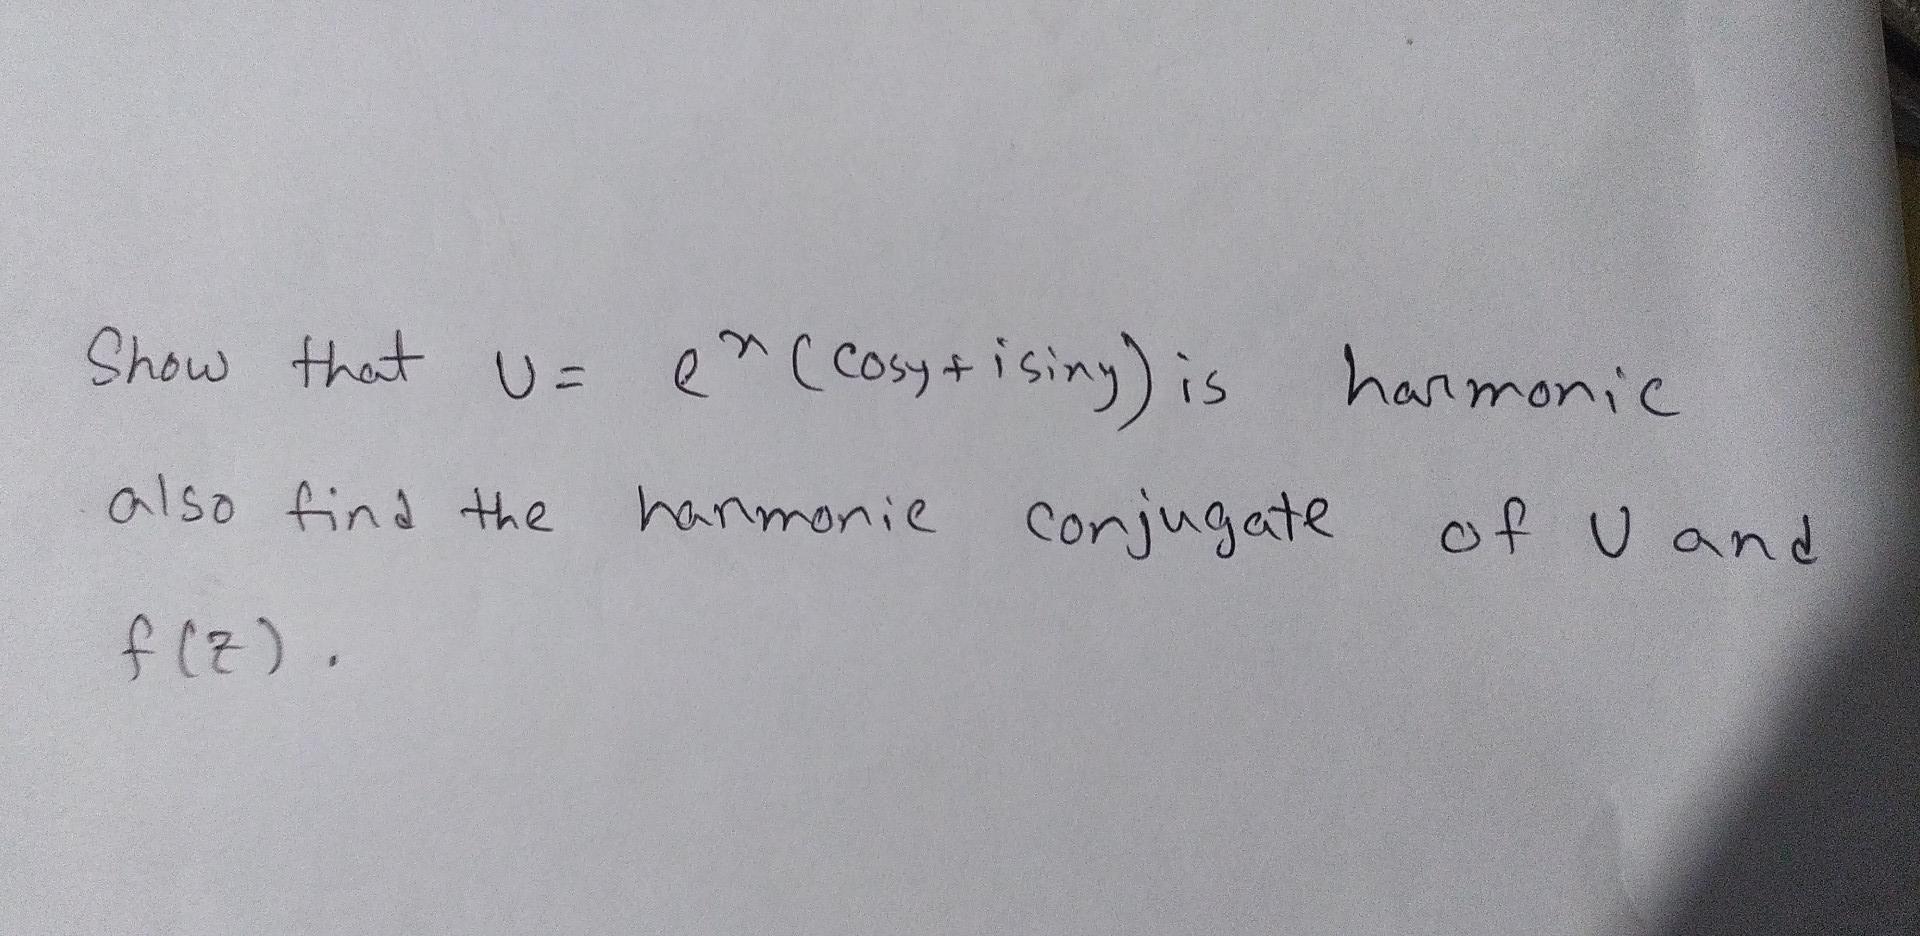 Show that U = e^x (cosy + isiny) is harmonic
also find the harmonic conjugate of U and
f(z).